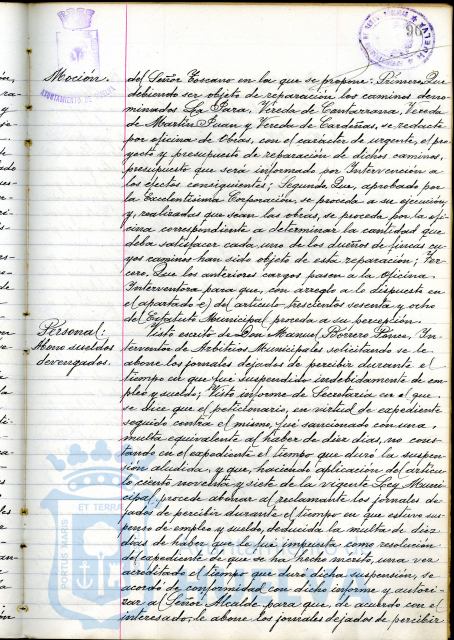 96
AYUNTAMIENTO DE HUELVA
Moción.
del Señor Toscano en la que se propone: Primero, Que
debiendo ser objeto de reparación los caminos deno-
minados La Jara, Vereda de Cantarrana, Vereda
de Martín Juan y Vereda de Cardeñas, se redacte
por oficina de Obras, con el carácter de urgente, el pro-
yecto y presupuesto de reparación de dichos caminos,
presupuesto que será informado por Intervención a
los efectos consiguientes; Segundo, Que, aprobado por
la Excelentísima Corporación, se proceda a su ejecución,
y, realizadas que sean las obras, se proceda por la ofi-
cina correspondiente a determinar la cantidad que
deba satisfacer cada uno de los dueños de fincas cu-
yos caminos han sido objeto de esta reparación; Ter-
cero, Que los anteriores cargos pasen a la Oficina
Interventora para que, con arreglo a lo dispuesto en
el apartado e) del artículo trescientos sesenta y ocho
del Estatuto Municipal proceda a su percepción.
Personal:
Abono sueldos
devengados.
Visto escrito de Don Manuel Borrero Ponce, In-
terventor de Arbitrios Municipales solicitando se le
abone los jornales dejados de percibir durante el
tiempo en que fué suspendido indebidamente de em-
pleo y sueldo; Visto informe de Secretaría en el que
se dice que el peticionario, en virtud de expediente
seguido contra el mismo, fué sancionado con una
multa equivalente al haber de diez días, no cons-
tando en el expediente el tiempo que duró la suspen-
sión aludida, y que, haciendo aplicación del artícu-
lo ciento noventa y siete de la vigente Ley Muni-
cipal, procede abonar al reclamante los jornales de-
jados de percibir durante el tiempo en que estuvo sus-
penso de empleo y sueldo, deducida la multa de diez
días de haber que le fué impuesta como resolución
del expediente de que se ha hecho mérito, una vez
acreditado el tiempo que duró dicha suspensión, se
acordó de conformidad con dicho informe y autori-
zar al Señor Alcalde para que, de acuerdo con el
interesado, le abone los jornales dejados de percibir
PORTUS MARIS
ET TERRAE